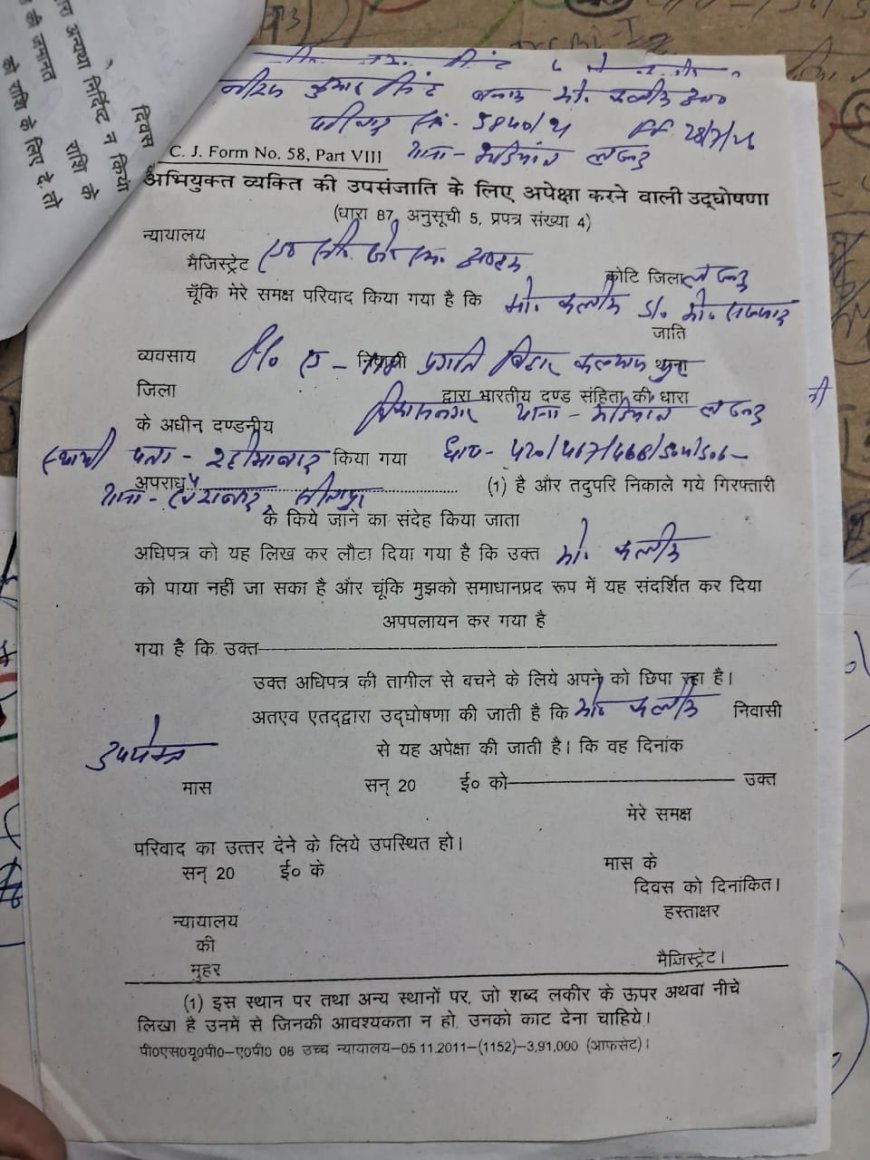 दिवस
अन्यथा निर्दिष्ट न किया
राशि के
की जमानत
की राशि के लिए दे तो
कुमार सिंह बनाम मो. कलीम
सं.- 5840/21
C. J. Form No. 58, Part VIII थाना - मड़ियांव लखनऊ
अभियुक्त व्यक्ति की उपसंजाति के लिए अपेक्षा करने वाली उद्घोषणा
(धारा 87, अनुसूची 5, प्रपत्र संख्या 4)
न्यायालय
मैजिस्ट्रेट
कोटि जिला लखनऊ
चूँकि मेरे समक्ष परिवाद किया गया है कि मो. कलीम S/o मो.
जाति
व्यवसाय निवासी प्रगति विहार कल्याणपुर थाना
जिला द्वारा भारतीय दण्ड संहिता की धारा
के अधीन दण्डनीय थाना - मड़ियांव लखनऊ
स्थायी पता - किया गया धारा - 420/467/468/504/506
अपराध थाना - सीतापुर (1) है और तदुपरि निकाले गये गिरफ्तारी
के किये जाने का संदेह किया जाता
अधिपत्र को यह लिख कर लौटा दिया गया है कि उक्त मो. कलीम
को पाया नहीं जा सका है और चूंकि मुझको समाधानप्रद रूप में यह संदर्शित कर दिया
अपपलायन कर गया है
गया है कि उक्त
उक्त अधिपत्र की तागील से बचने के लिये अपने को छिपा रहा है।
अतएव एतद्द्वारा उद्घोषणा की जाती है कि मो० कलीम निवासी
उपरोक्त से यह अपेक्षा की जाती है। कि वह दिनांक
मास सन् 20 ई० को उक्त
मेरे समक्ष
परिवाद का उत्तर देने के लिये उपस्थित हो।
सन् 20 ई० के मास के
दिवस को दिनांकित।
हस्ताक्षर
न्यायालय
की
मुहर मैजिस्ट्रेट।
(1) इस स्थान पर तथा अन्य स्थानों पर, जो शब्द लकीर के ऊपर अथवा नीचे
लिखा है उनमें से जिनकी आवश्यकता न हो, उनको काट देना चाहिये।
पी0एस0यू0पी0-ए0पी0 08 उच्च न्यायालय-05.11.2011-(1152)-3,91,000 (आफसेट)।